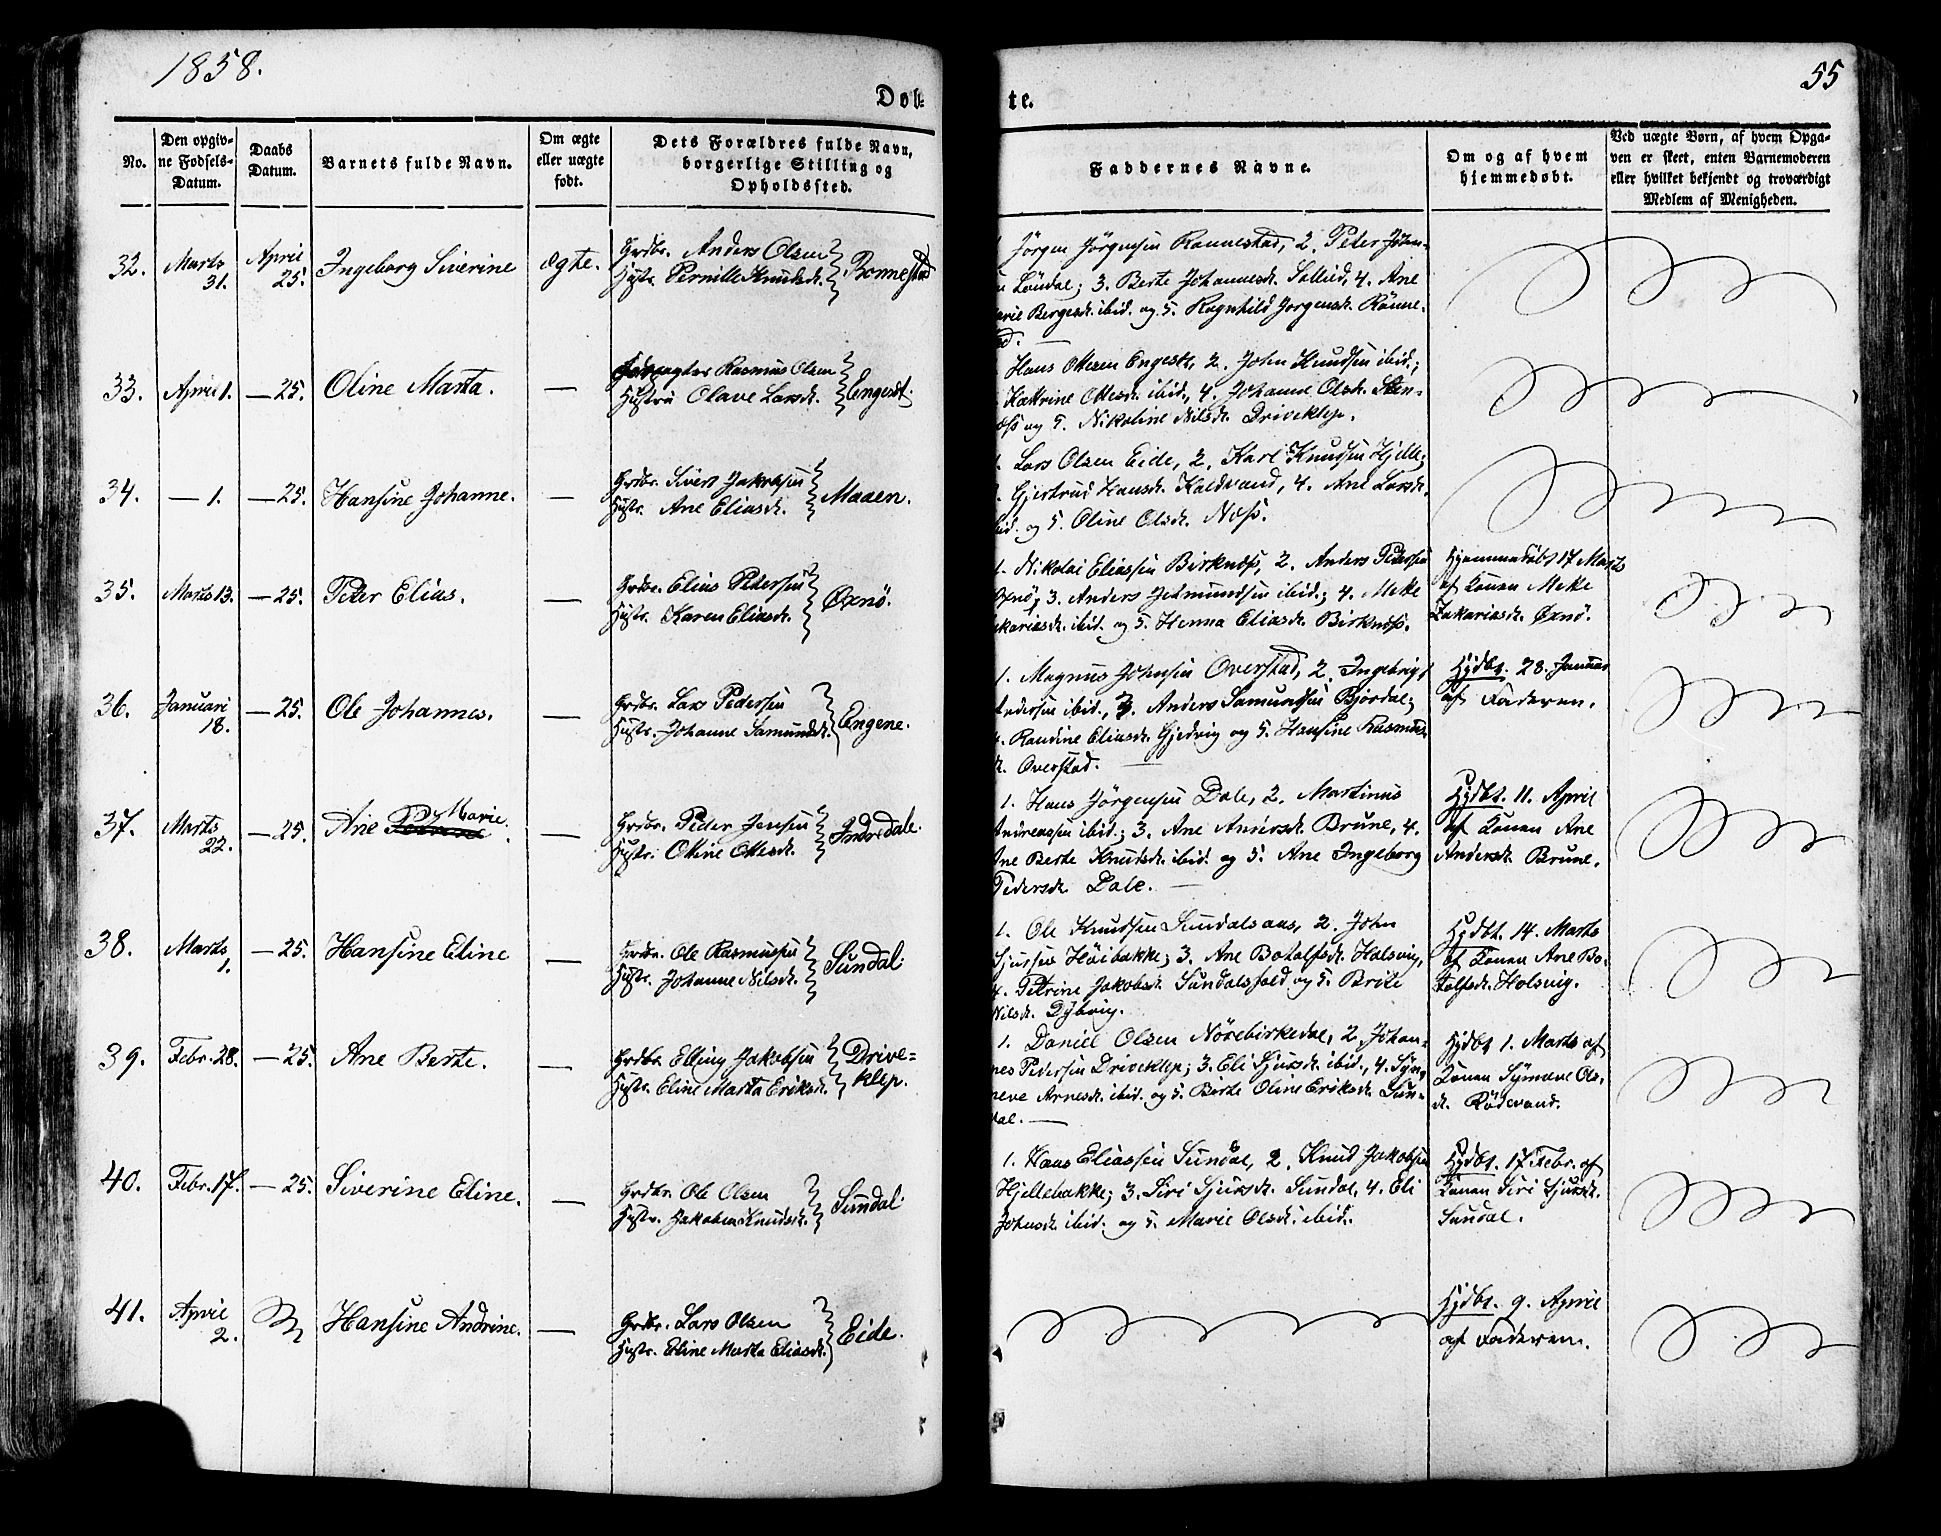 1858.
Døb-
te.
55
No.
Den opgiv-
ne Fødsels-
Datum.
Daabs
Datum.
Barnets fulde Navn.
Om ægte
eller uægte
født.
Dets Forældres fulde Navn,
borgerlige Stilling og
Opholdssted.
Faddernes Navne.
Om og af hvem
hjemmedøbt.
Ved uægte Børn, af hvem Opga-
ven er skeet, enten Barnemoderen
eller hvilket bekjendt og troværdigt
Medlem af Menigheden.
32. Marts 31. April 25. Ingeborg Siverine ægte.
Grdbr. Anders Olsen
Hustr. Pernille Knudsdr. Ronnestad
Jörgen Jörgensen Ronnestad, 2. Peter Johan-
Løvdal; 3. Berte Johannesdr. Sollid, 4. Ane
arie Bergesdr. ibid. og 5. Ragnhild Jorgensdr. Rönne-
d.
33. April 1. — 25. Oline Marta. —
Rasmus Olsen
Hustru Olave Larsdr. Engeset.
Hans Ottesen Engeset, 2. John Knudsen ibid.;
Katrine Ottesdr. ibid., 4. Johanne Olsdr. Sten-
æs og 5. Nikoline Nilsdr. Driveklep.
34. — 1. — 25. Hansine Johanne. —
Grdbr. Sivert Jakobsen
Hustr. Ane Eliasdr. Maaen.
Lars Olsen Eide, 2. Karl Knudsen Hjelle;
Gjertrud Hansdr. Kaldvand, 4. Ane Larsdr.
ibid. og 5. Oline Olsdr. Næss.
35. Marts 13. — 25. Peter Elias. —
Grdbr. Elias Petersen
Hustr. Karen Eliasdr. Øxnö.
1. Nikolai Eliassen Birknæss, 2. Anders Petersen
Øxnö; 3. Anders Jetmundsen ibid.; 4. Meke
akariasdr. ibid. og 5. Henna Eliasdr. Birknæss.
Hjemmedöbt 17 Marts
af Konen Meke
Zakariasdr. Øxnö.
36. Januari 18. — 25. Ole Johannes. —
Grdbr. Lars Pedersen
Hustr. Johanne Samundsdr. Engene.
1. Magnus Johnsen Overstad, 2. Ingebrigt
Andersen ibid., 3. Anders Samundsen Bjordal;
4. Raudine Eliasdr. Gjedvig og 5. Hansine Rasmus-
dr. Overstad.
Hjdbt. 28. Januar
af Faderen.
37. Marts 22. — 25. Ane Marie. —
Grdbr. Peder Jensen
Hustr. Oline Ottesdr. Indredale.
1. Hans Jörgensen Dale, 2. Martinus
Andreassen ibid; 3. Ane Andersdr. Brune, 4.
Ane Berte Knutsdr. ibid. og 5. Ane Ingeborg
Pedersdr. Dale.
Hjdbt. 11. April
af Konen Ane
Andersdr. Brune.
38. Marts 1. — 25. Hansine Eline —
Grdbr. Ole Rasmussen
Hustr. Johanne Nilsdr. Sundal.
1. Ole Knudsen Sundalsaas, 2. John
Sjursen Höibakke; 3. Ane Botolfsdr. Holsvig,
4. Petrine Jakobsdr. Sundalsfald og 5. Brite
Nilsdr. Dybvig.
Hjdbt. 14. Marts
af Konen Ane Bo-
tolfsdr. Holsvig.
39. Febr. 28. — 25. Ane Berte. —
Grdbr. Elling Jakobsen
Hustr. Eline Marta Eriksdr. Drive-
klep.
1. Daniel Olsen Nörebirkedal, 2. Johan-
nes Pedersen Driveklep; 3. Eli Sjursdr. ibid., 4. Syn-
neve Arnesdr. ibid. og 5. Berte Oline Eriksdr. Sun-
dal.
Hjdbt 1. Marts af
Konen Synneve Ols-
dr. Rödevand.
40. Febr. 17. — 25. Siverine Eline. —
Grdbr. Ole Olsen
Hustr. Jakobea Knudsdr. Sundal
1. Hans Eliassen Sundal, 2. Knud Jakobsen
Hjellebakke; 3. Siri Sjursdr. Sundal, 4. Eli
Johnsdr. ibid. og 5. Marie Olsdr. ibid.
Hjdbt. 17 Febr. af
Konen Siri Sjursdr.
Sundal.
41. April 2. Hansine Andrine. —
Grdbr. Lars Olsen
Hustr. Eline Marta Eliasdr. Eide.
Hjdbt. 9. April
af Faderen.